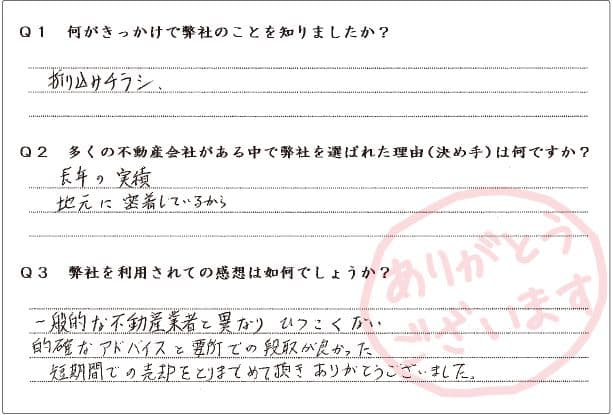 Q1 何がきっかけで弊社のことを知りましたか?
折り込みチラシ、
Q2 多くの不動産会社がある中で弊社を選ばれた理由(決め手)は何ですか?
長年の実績
地元に密着しているから
Q3 弊社を利用されての感想は如何でしょうか?
一般的な不動産業者と異なりひつこくない
的確なアドバイスと要所での段取が良かった
短期間での売却をとりまとめて頂きありがとうございました。
ありがとう
ございます